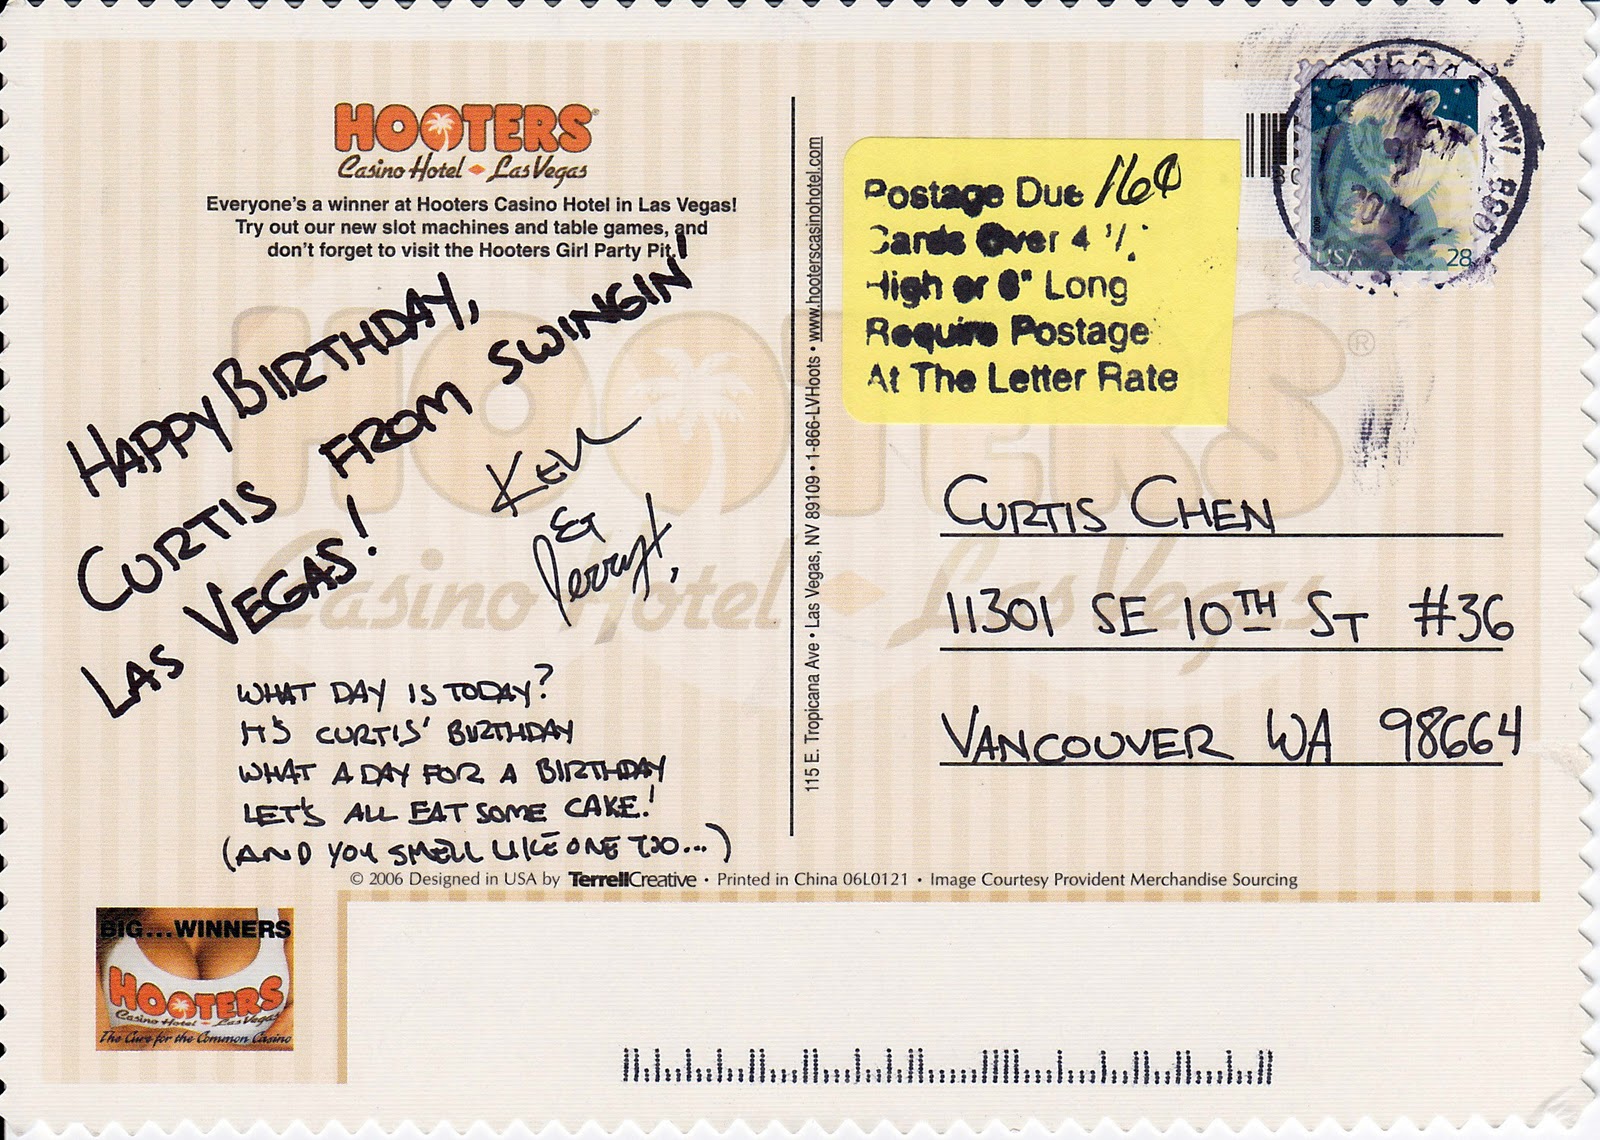 HOOTERS®
Casino Hotel Las Vegas
Everyone's a winner at Hooters Casino Hotel in Las Vegas!
Try out our new slot machines and table games, and
don't forget to visit the Hooters Girl Party Pit.
HAPPY BIRTHDAY,
CURTIS FROM SWINGIN'
LAS VEGAS!
KEN
&
Perry
WHAT DAY IS TODAY?
IT'S CURTIS' BIRTHDAY
WHAT A DAY FOR A BIRTHDAY
LET'S ALL EAT SOME CAKE!
(AND YOU SMELL LIKE ONE TOO...)
115 E. Tropicana Ave • Las Vegas, NV 89109 • 1-866-LVHoots • www.hooterscasinohotel.com
Postage Due 16¢
Cards Over 4 1/
High or 6" Long
Require Postage
At The Letter Rate
LAS VEGAS
USA 28
2009
CURTIS CHEN
11301 SE 10TH ST #36
VANCOUVER WA 98664
HOOTERS®
Casino Hotel Las Vegas
© 2006 Designed in USA by TerrellCreative • Printed in China 06L0121 • Image Courtesy Provident Merchandise Sourcing
BIG...WINNERS
HOOTERS
Casino Hotel Las Vegas
The Cure for the Common Casino